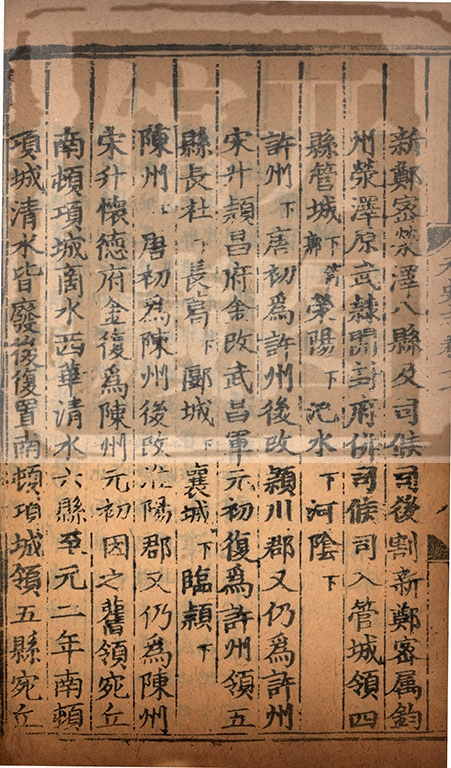 新鄭密滎澤八縣及司候司後割新鄭密属鈞
州滎澤原武隷開封府併司候司入管城領四
縣管城下倚郭滎陽下汜水下河陰下
許州下唐初爲許州後改潁川郡又仍爲許州
宋升潁昌府金改武昌軍元初復爲許州領五
縣長社下長葛下郾城下襄城下臨潁下
陳州下唐初爲陳州後改淮陽郡又仍爲陳州
宋升懷德府金復爲陳州元初因之舊領宛丘
南頓項城商水西華清水六縣至元二年南頓
項城清水皆廢後復置南頓項城領五縣宛丘